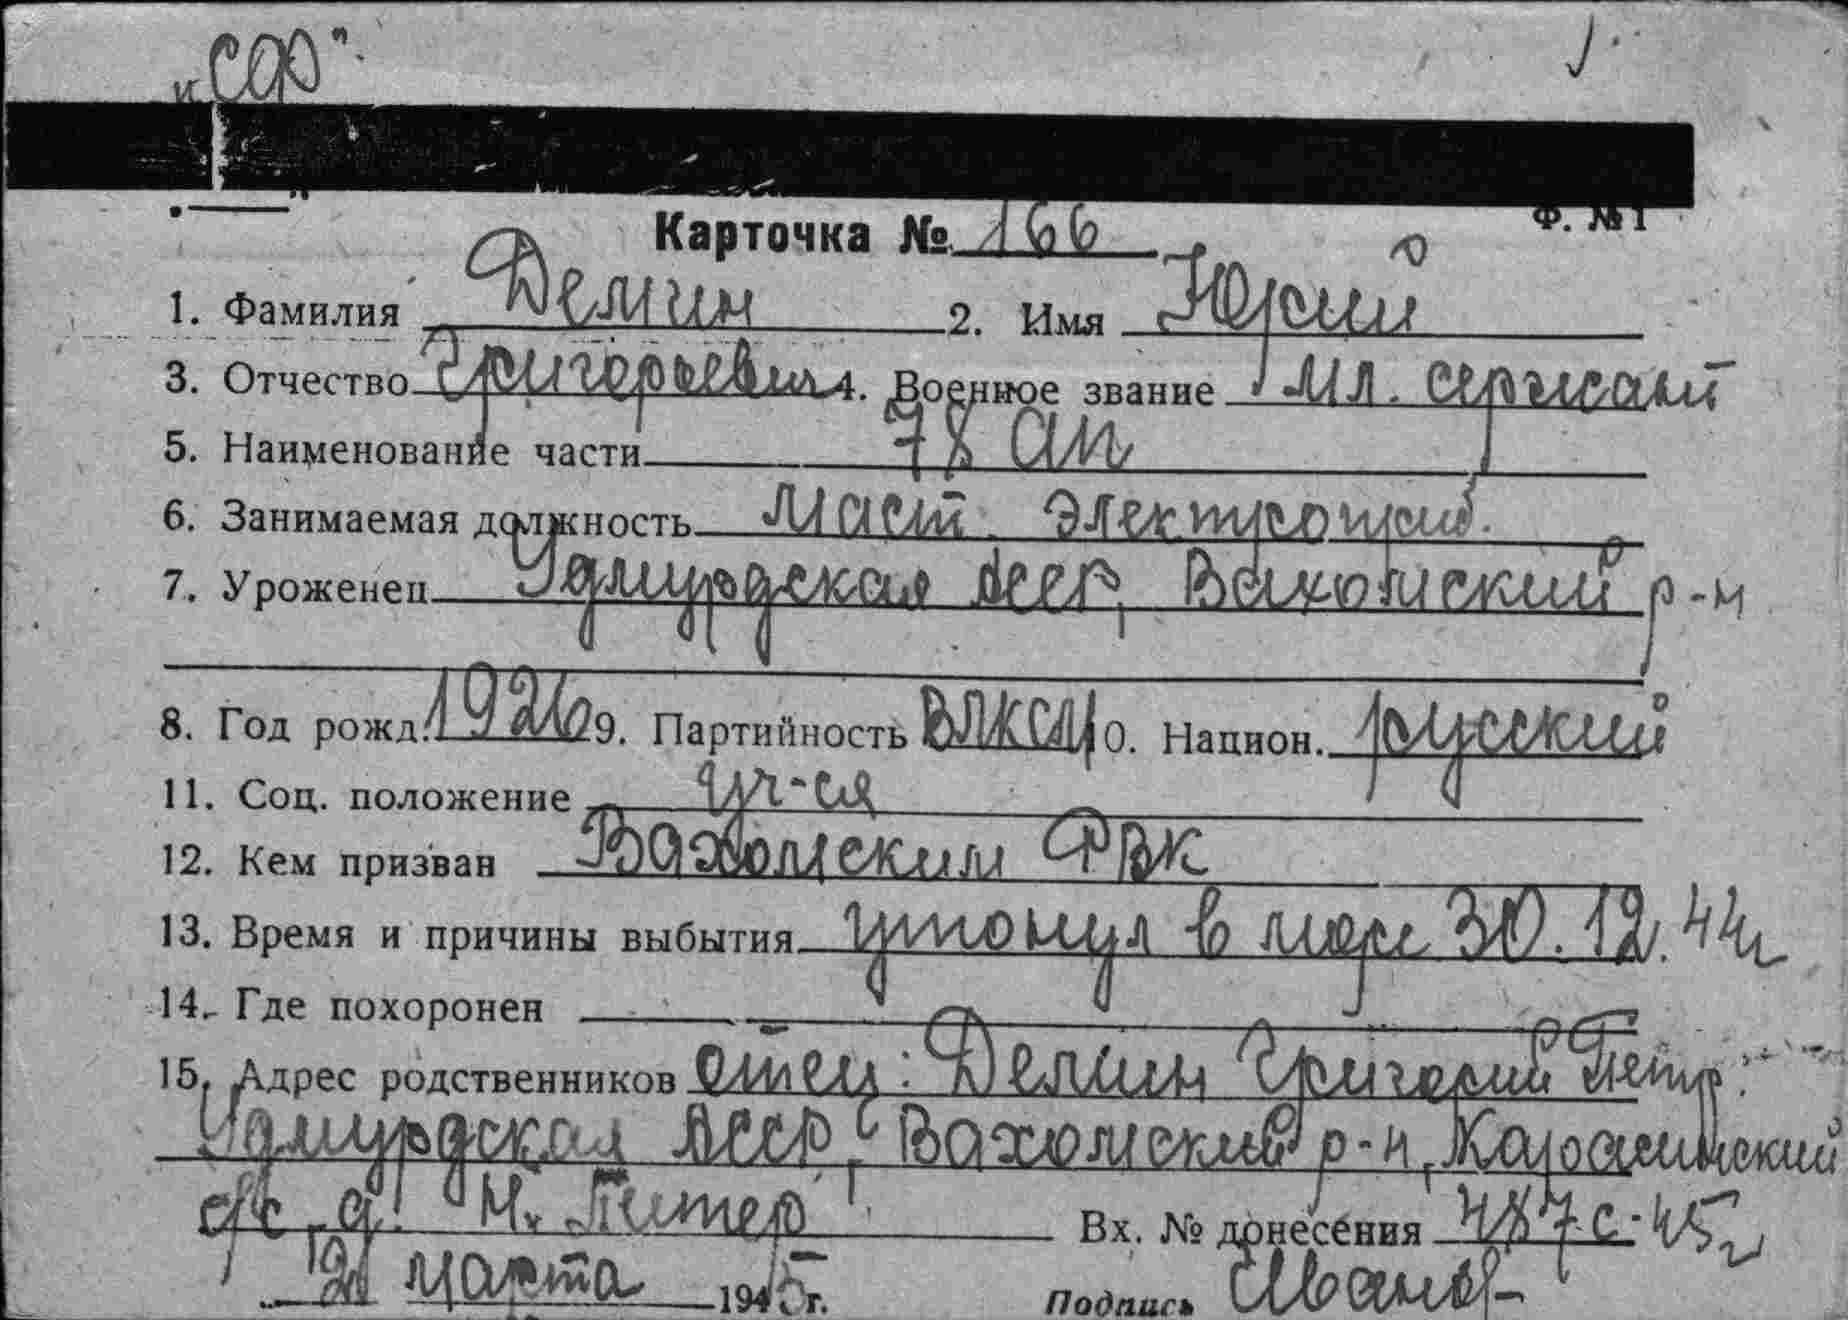 „СФ"
Ф. №1
Карточка № 166
1. Фамилия Демин 2. Имя Юрий
3. Отчество Григорьевич 4. Военное звание мл. сержант
5. Наименование части 78 ап
6. Занимаемая должность маст. электроприб.
7. Уроженец Удмурдская АССР, Вахомский р-н
8. Год рожд. 1926 9. Партийность ВЛКСМ 10. Национ. русский
11. Соц. положение уч-ся
12. Кем призван Вахомским РВК
13. Время и причины выбытия утонул в море 30.12.44г
14. Где похоронен
15. Адрес родственников отец: Демин Григорий Петр.
Удмурдская АССР, Вахомский р-н,
с/с д. М. Питер Вх. № донесения 487с-45г
21 марта 1945 г. Подпись